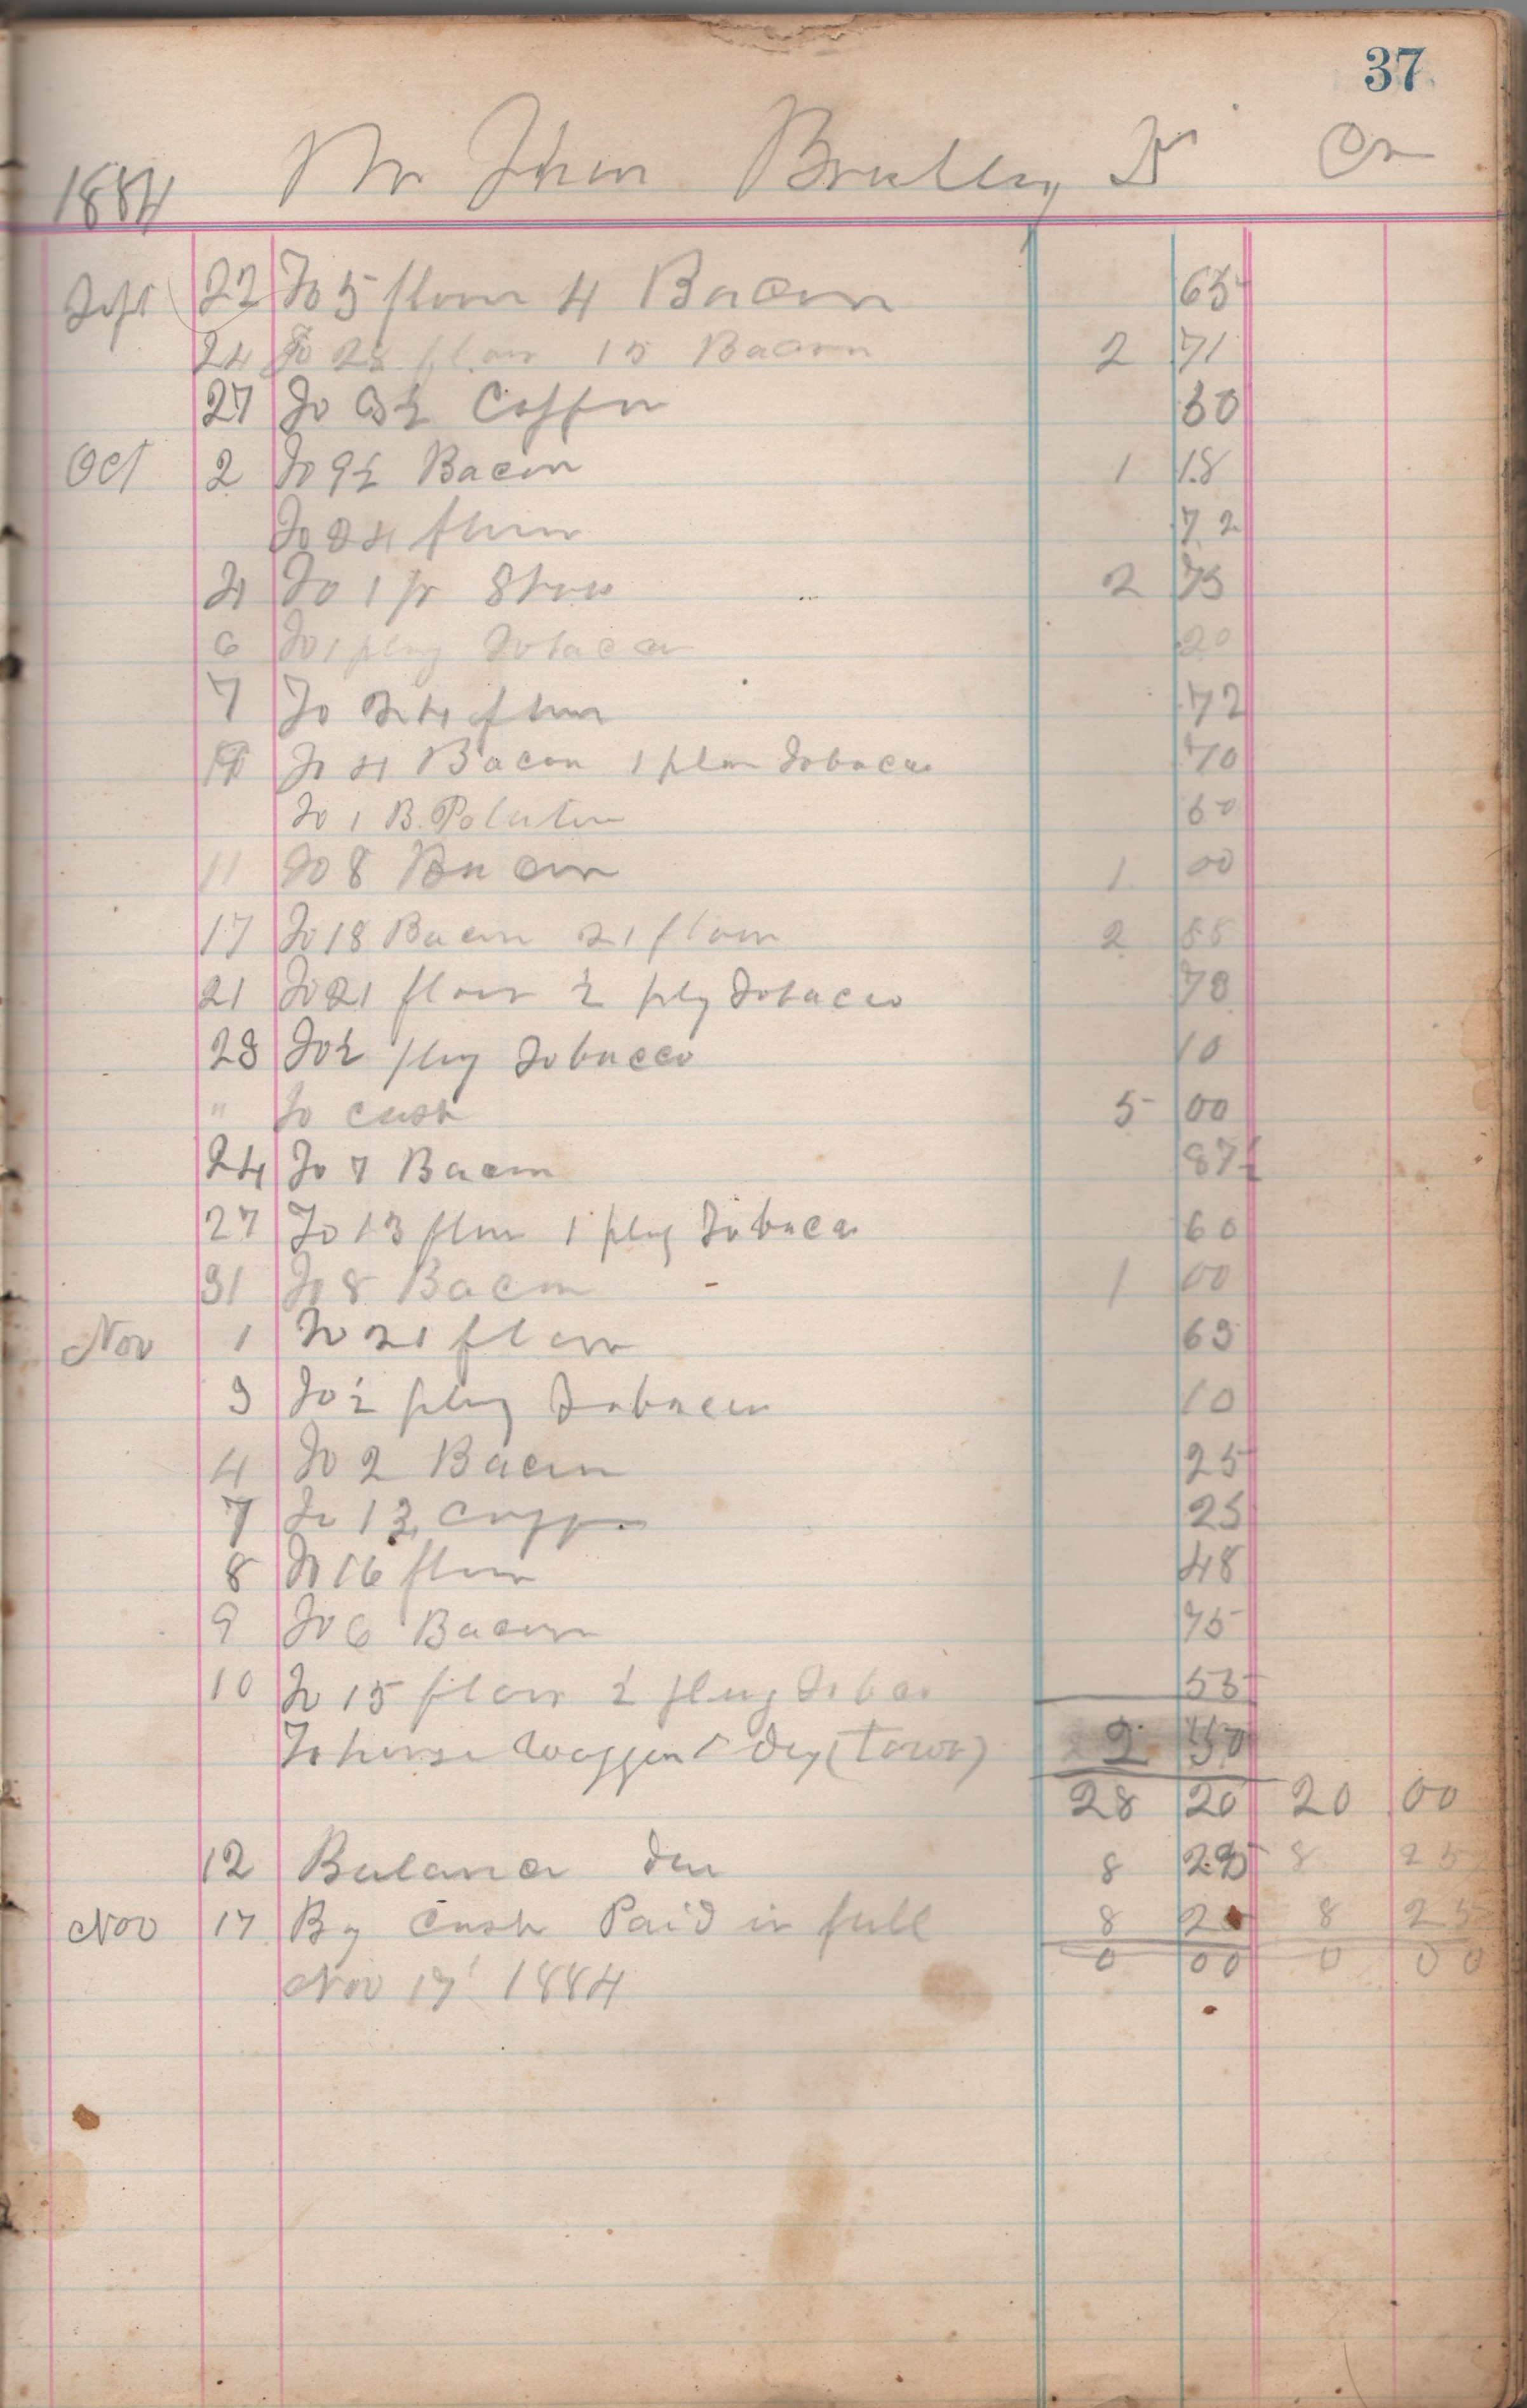 37
1884 Mr John Bradley Dr Cr
Sept 22 To 5 flour 4 Bacon 65
24 To 28 flour 15 Bacon 2 71
27 To 3½ Coffee 50
Oct 2 To 9½ Bacon 1 18
To 24 flour 72
4 To 1 pr Shoes 2 75
6 To 1 plug Tobacco 20
7 To 24 flour 72
To 4 Bacon 1 plug Tobacco 70
To 1 B. Potatoes 60
11 To 8 Bacon 1 00
17 To 18 Bacon 21 flour 2 88
21 To 21 flour ½ plg Tobacco 73
23 To ½ plug Tobacco 10
" To Cash 5 00
24 To 7 Bacon 87½
27 To 13 flour 1 plug Tobacco 60
31 To 8 Bacon 1 00
Nov 1 To 21 flour 63
3 To ½ plug Tobacco 10
4 To 2 Bacon 25
7 To Coffee 25
8 To 16 flour 48
9 To 6 Bacon 75
10 To 15 flour ½ plug Tobaco 55
To horse Waggon 1 Dey (Town) 2 50
28 20 20 00
12 Balance due 8 25 8 25
Nov 17 By Cash Paid in full 8 2 8 25
0 00 0 00
Nov 17 1884